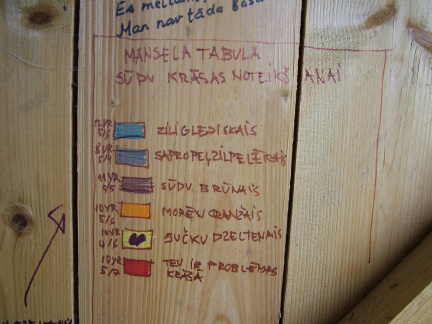 Es meitam
Man nav tāda
MANSELA TABULA
SŪDU KRĀSAS NOTEIKŠANAI
5/6 ZILIGLEJISKAIS
8YR 5/4 SAPROPEĻZILPELĒKAIS
11YR 5/5 SŪDU BRŪNAIS
10YR 5/6 MORĒN ORANŽAIS
10YR 4/6 SUČKU DZELTENAIS
10YR 5/7 TEV IR PROBLĒMAS KRĀSĀ